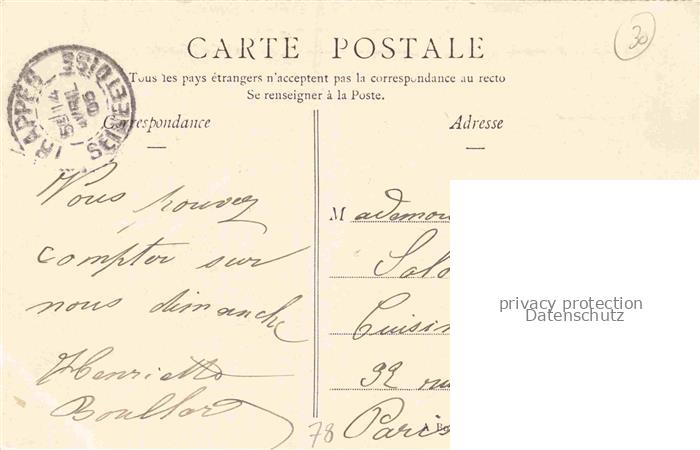 30
CARTE POSTALE
Tous les pays étrangers n'acceptent pas la correspondance au recto
Se renseigner à la Poste.
TRAPPES
SEINE ET OISE
14
AVRIL
05
Correspondance
Adresse
Vous pouvez
compter sur
nous dimanche
Henriette
Boullar
Mademoi
Salo
Cuisin
92 ru
Paris
78
privacy protection
Datenschutz